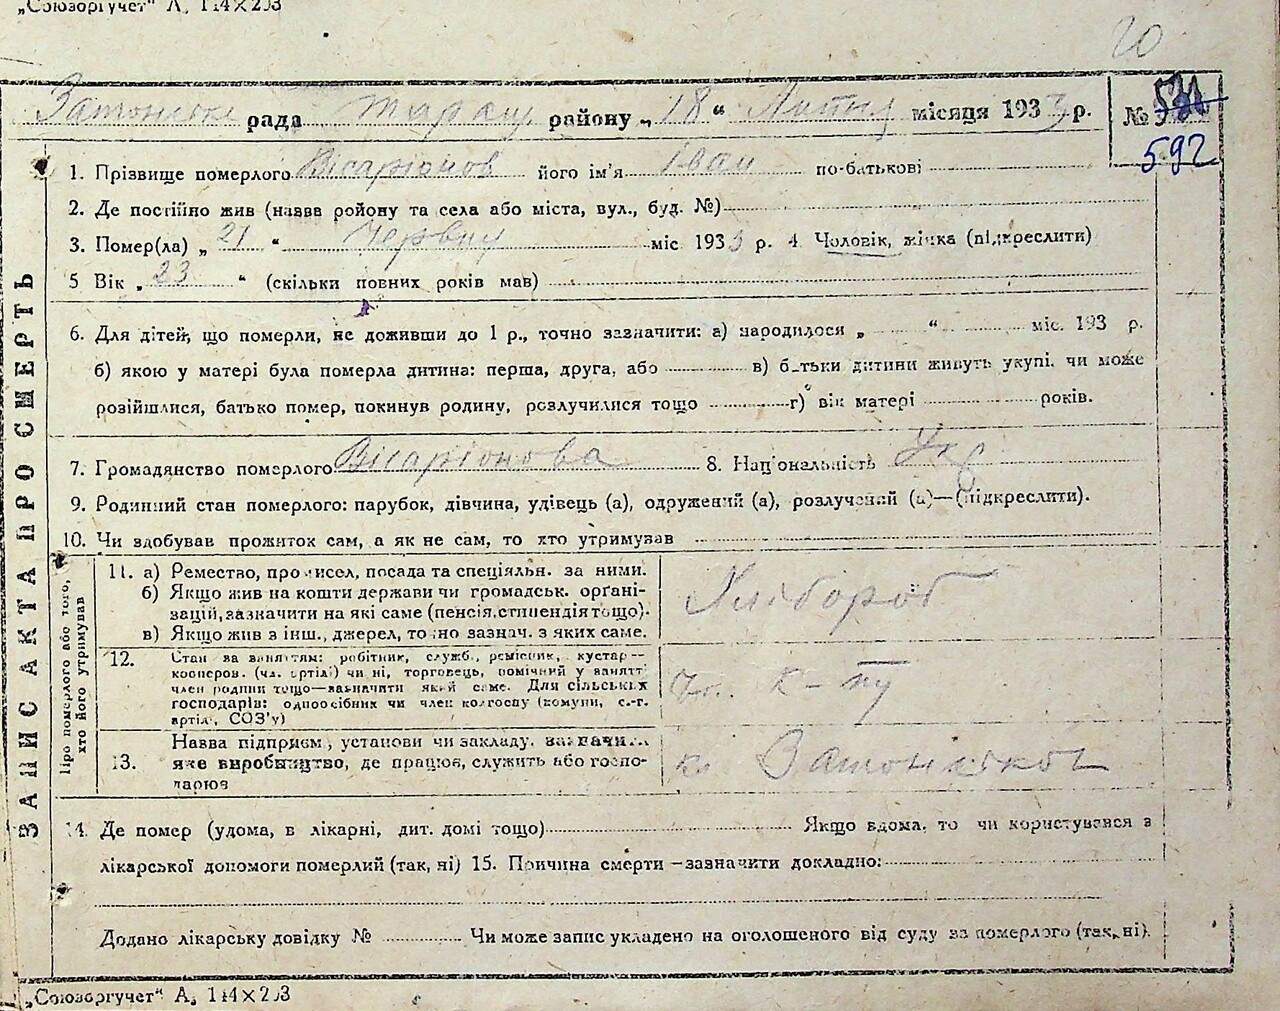 „Союзоргучет“ А, 114×203
20
рада Таращ району „18“ Липня місяця 1933 р. №
592
1. Прізвище померлого Вісаріонов його ім'я Іван по-батькові
2. Де постійно жив (назва ройону та села або міста, вул., буд. №)
3. Помер(ла) „21“ Червня міс 1933 р. 4. Чоловік, жінка (підкреслити)
5 Вік „23“ (скільки повних років мав)
6. Для дітей, що померли, не доживши до 1 р., точно зазначити: а) народилося „ “ міс. 193 р.
б) якою у матері була померла дитина: перша, друга, або в) батьки дитини живуть укупі, чи може
розійшлися, батько помер, покинув родину, розлучилися тощо г) вік матері років.
7. Громадянство померлого Вісаріонова 8. Національність Укр
9. Родинний стан померлого: парубок, дівчина, удівець (а), одружений (а), розлучений (а)—(підкреслити).
10. Чи здобував прожиток сам, а як не сам, то хто утримував
ЗАПИС АКТА ПРО СМЕРТЬ
Про померлого або того, хто його утримував
11. а) Ремество, промисел, посада та спеціяльн. за ними.
б) Якщо жив на кошти держави чи громадськ. органі-
зацій, зазначити на які саме (пенсія, стипендія тощо).
в) Якщо жив з інш., джерел, точно зазнач. з яких саме.
Хлібороб
12. Стан за заняттям: робітник, служб., ремісник, кустар—
кооперов. (чл. артілі) чи ні, торговець, помічний у занятті
член родини тощо—зазначити який саме. Для сільських
господарів: одноосібник чи член колгоспу (комуни, с.-г.
артілі, СОЗ'у)
13. Назва підприєм, установи чи закладу, зазначити
яке виробництво, де працює, служить або госпо-
дарює
14. Де помер (удома, в лікарні, дит. домі тощо) Якщо вдома, то чи користувався з
лікарської допомоги померлий (так, ні) 15. Причина смерти—зазначити докладно:
Додано лікарську довідку № Чи може запис укладено на оголошеного від суду за померлого (так, ні).
„Союзоргучет“ А, 114×203